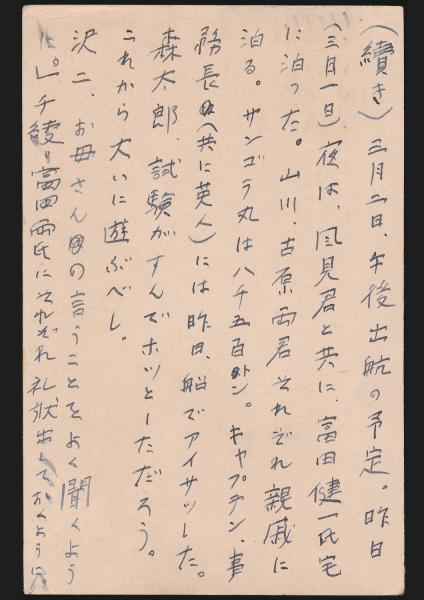 (續き) 三月二日、午後出航の予定。昨日
(三月一日)夜は、風見君と共に、富田健一氏宅
に泊った。山川、古原両君それぞれ親戚に
泊る。サンゴラ丸は八千五百トン。キャプテン、事
務長(共に英人)には昨日、船でアイサツした。
森太郎、試験がすんでホッとしただろう。
これから大いに遊ぶべし。
沢二、お母さんの言うことをよく聞くよう
に。」千綾り富田両氏にそれぞれ礼状出しておくように